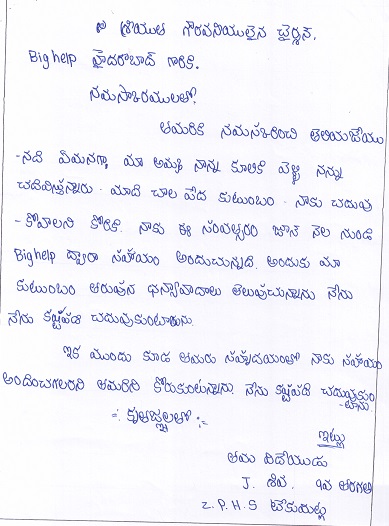 శ్రీయుత గౌరవనీయులైన చైర్మన్.
Big help హైదరాబాద్ గారికి.
నమస్కారములతో!
తమరికి నమస్కరించి తెలియజేయు
-నది ఏమనగా, మా అమ్మ నాన్న కూలికి వెళ్ళి నన్ను
చదివిస్తున్నారు. మాది చాల పేద కుటుంబం. నాకు చదువు
-కోవాలని కోరిక. నాకు ఈ సంవత్సరం జూన్ నెల నుండి
Big help ద్వారా సహాయం అందుచున్నది. అందుకు మా
కుటుంబం తరుపున ధన్యావాదాలు తెలుపుచున్నాను నేను
నేను కష్టపడి చదువుకుంటాను.
ఇక ముందు కూడ తమరు సహృదయంతో నాకు సహాయం
అందించగలరని తమరిని కోరుకుంటున్నాను. నేను కష్టపడి చదువుకుం
-టాను.
=: కృతజ్ఞతలతో :=
ఇట్లు
తమ విదేయుడు
J. శివ. 9వ తరగతి
Z.P.H.S టేకుమట్ల